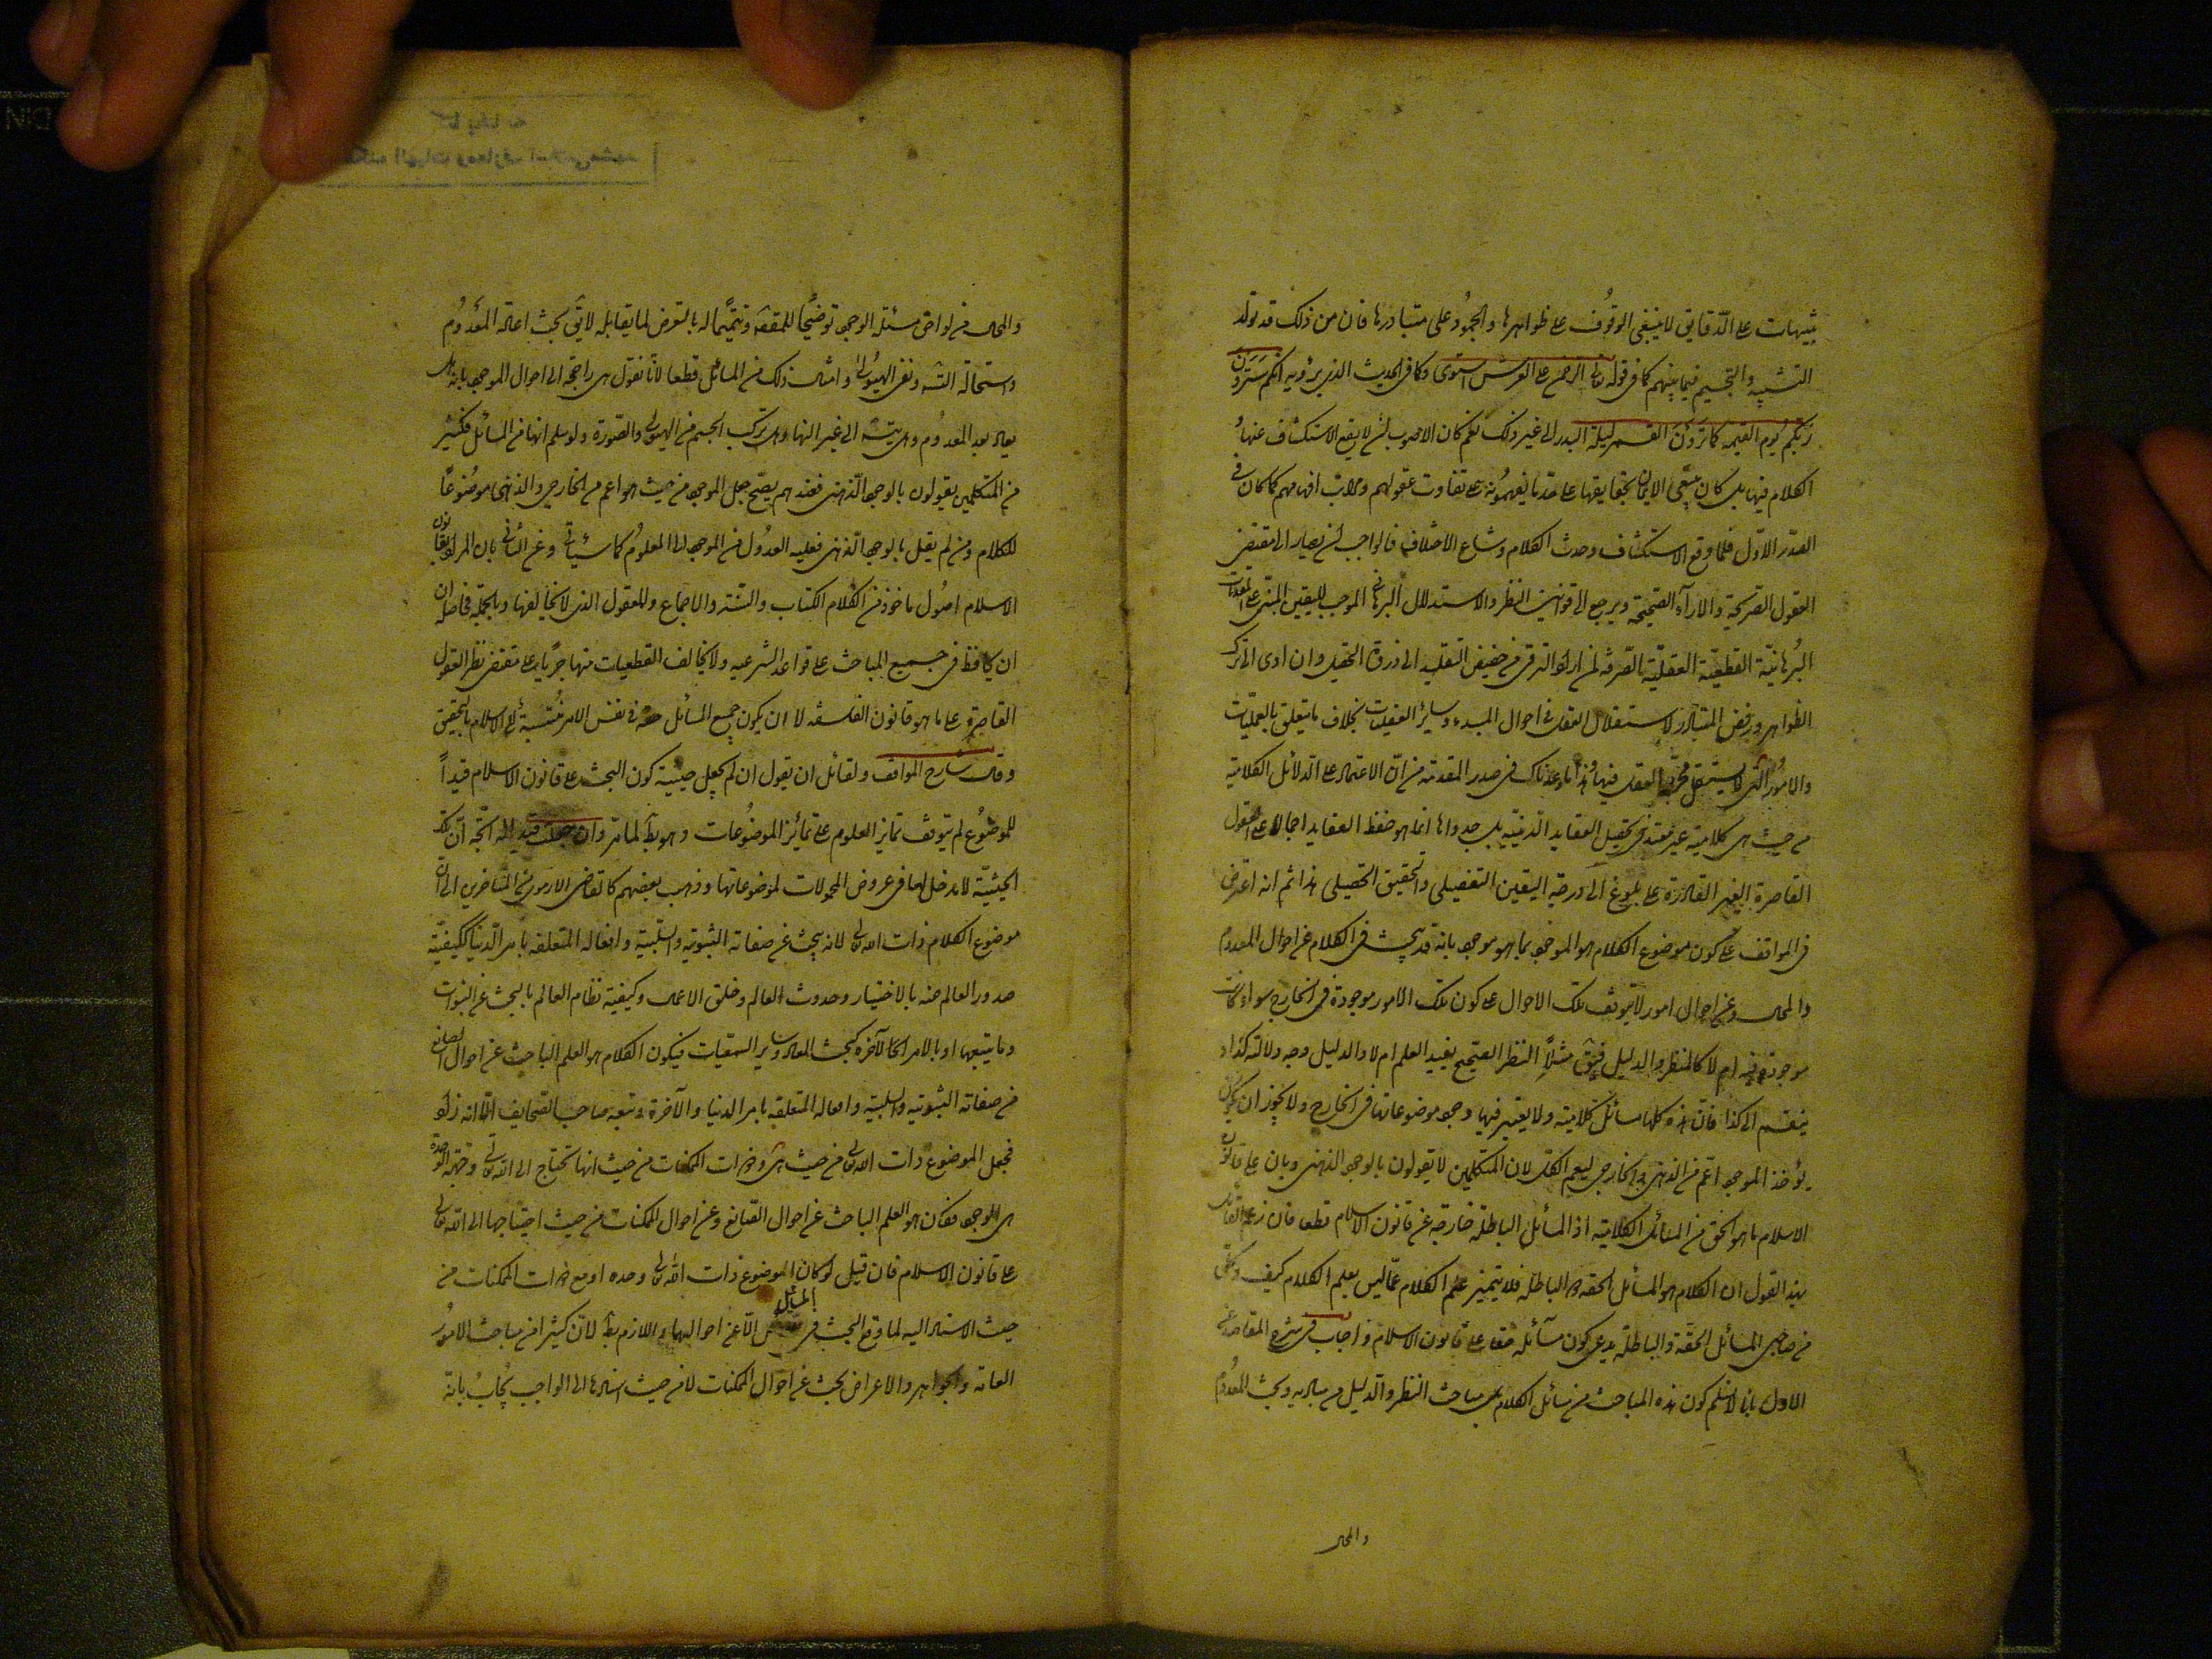 تنبيهات على الدقايق لا ينبغى الوقوف على ظواهرها والجمود على متبادرها فان من ذلك قد تولد
التشبيه والتجسيم فيما بينهم كما فى قوله تعالى الرحمن على العرش استوى وكما فى الحديث الذى يرويه انكم سترون
ربكم يوم القيمة كما ترون القمر ليلة البدر الى غير ذلك نعم كان الاصوب ان لا يقع الاستكشاف عنها
الكلام فيها بل كان يبقى الايمان بحقايقها على حد ما يفهمونه على تفاوت عقولهم ومراتب افهامهم كما كان فى
الصدر الاول فلما وقع الاستكشاف وحدث الكلام وشاع الاختلاف فالواجب ان يصار الى مقتضى
العقول الصريحة والاراء الصحيحة ويرجع الى قوانين النظر والاستدلال البرهانى الموجب لليقين المبتنى على المقدمات
البرهانية القطعية العقلية الصرفة لمن اراد الترقى من حضيض التقليد الى ذروة التحصيل وان ادى الى ترك
الظواهر ورفض المتبادر لاستقلال العقل فى احوال المبدء وساير العقليات بخلاف ما يتعلق بالعمليات
والامور التى لا يستقل مجرد العقل فيها وهذا ما وعدناك فى صدر المقدمة من ان الاعتماد على الدلائل الكلامية
من حيث هى كلامية غير مجد فى تحصيل العقايد الدينية بل جدواها انما هو حفظ العقايد اجمالا على العقول
القاصرة الغير القادرة على بلوغ الى درجة اليقين التفصيلى والتحقيق التحصيلى هذا ثم انه اعترض
فى المواقف على كون موضوع الكلام هو الموجود بما هو موجود بانه قد يبحث فى الكلام عن احوال المعدوم
والحال وعن احوال امور لا يتوقف تلك الاحوال على كون تلك الامور موجودة فى الخارج سواء كانت
موجودة فيه ام لا كالنظر والدليل فيق مثلا النظر الصحيح يفيد العلم ام لا والدليل وجه دلالته كذا و
ينقسم الى كذا فان هذه كلها مسائل كلامية ولا يعتبر فيها وجود موضوعاتها فى الخارج ولا يجوز ان يكون
يؤخذ الموجود اعم من الذهنى والخارجى ليعم الكل لان المتكلمين لا يقولون بالوجود الذهنى وبان على قانون
الاسلام ما هو الحق من المسائل الكلامية اذ المسائل الباطلة خارجة عن قانون الاسلام قطعا فان زعم القائل
بهذا القول ان الكلام هو المسائل الحقة والباطلة فلا يتميز علم الكلام عما ليس بعلم الكلام كيف وكل
من صاحبى المسائل الحقة والباطلة يدعى كون مسائله حقة على قانون الاسلام واجاب فى شرح المقاصد عن
الاول بانا لا نسلم كون هذه المباحث من مسائل الكلام بل مباحث النظر والدليل من مباديه وبحث المعدوم
والحال
والحال من لواحق مسئلة الوجود توضيحا للمقصد وتتميما له بالتعرض لما يقابله لا يق بحث اعادة المعدوم
واستحالة التس ونفى الهيولى وامثال ذلك من المسائل قطعا لانا نقول هى راجعة الى احوال الموجود بانه هل
يعاد بعد العدم وهل يتسلسل الى غير النهاية وهل يتركب الجسم من الهيولى والصورة ولو سلم انها من المسائل فكثير
من المتكلمين يقولون بالوجود الذهنى فعندهم يصح جعل الموجود من حيث هو اعم من الخارجى والذهنى موضوعا
للكلام ومن لم يقل بالوجود الذهنى فعليه العدول من الموجود الى المعلوم كما سيأتى وعن الثانى بان المراد بقانون
الاسلام اصول ماخوذ من الكلام الكتاب والسنة والاجماع والمعقول الذى لا يخالفها وبالجملة فحاصله ان
ان يحافظ فى جميع المباحث على قواعد الشرعيه ولا يخالف القطعيات منها جريا على مقتضى نظر العقول
القاصرة على ما هو قانون الفلسفة لا ان يكون جميع المسائل حقه فى نفس الامر منتسبة الى الاسلام بالتحقيق
وقال شارح المواقف ولقائل ان يقول ان لم يجعل حيثية كون البحث على قانون الاسلام قيدا
للموضوع لم يتوقف تمايز العلوم على تمايز الموضوعات وهو بط لما مر وان جعلت قيدا له اتجه ان تلك
الحيثية لا مدخل لها فى عروض المحمولات لموضوعاتها وذهب بعضهم كالقاضى الارموى من المتاخرين الى ان
موضوع الكلام ذات الله تعالى لانه يبحث عن صفاته الثبوتية والسلبية وافعاله المتعلقه بامر الدنيا ككيفية
صدور العالم عنه بالاختيار وحدوث العالم وخلق الاعمال وكيفية نظام العالم بالبحث عن النبوات
وما يتبعها او بالامر الاخرة كبحث المعاد وساير السمعيات فيكون الكلام هو العلم الباحث عن احوال الصانع
من صفاته الثبوتيه والسلبية وافعاله المتعلقه بامر الدنيا والآخرة وتبعه صاحب الصحايف الا انه زاد
فجعل الموضوع ذات الله تعالى من حيث هى وذات الممكنات من حيث انها تحتاج الى الله تعالى وجهة الوحدة
هى الوجود فكان هو العلم الباحث عن احوال الصانع وعن احوال الممكنات من حيث احتياجها الى الله تعالى
على قانون الاسلام فان قيل لو كان الموضوع ذات الله تعالى وحده او مع ذات الممكنات من
حيث الاستناد اليه لما وقع البحث فى المسائل الا عن احوالها واللازم بط لان كثيرا من مباحث الامور
العامة والجواهر والاعراض بحث عن احوال الممكنات لا من حيث استنادها الى الواجب يجاب بانه